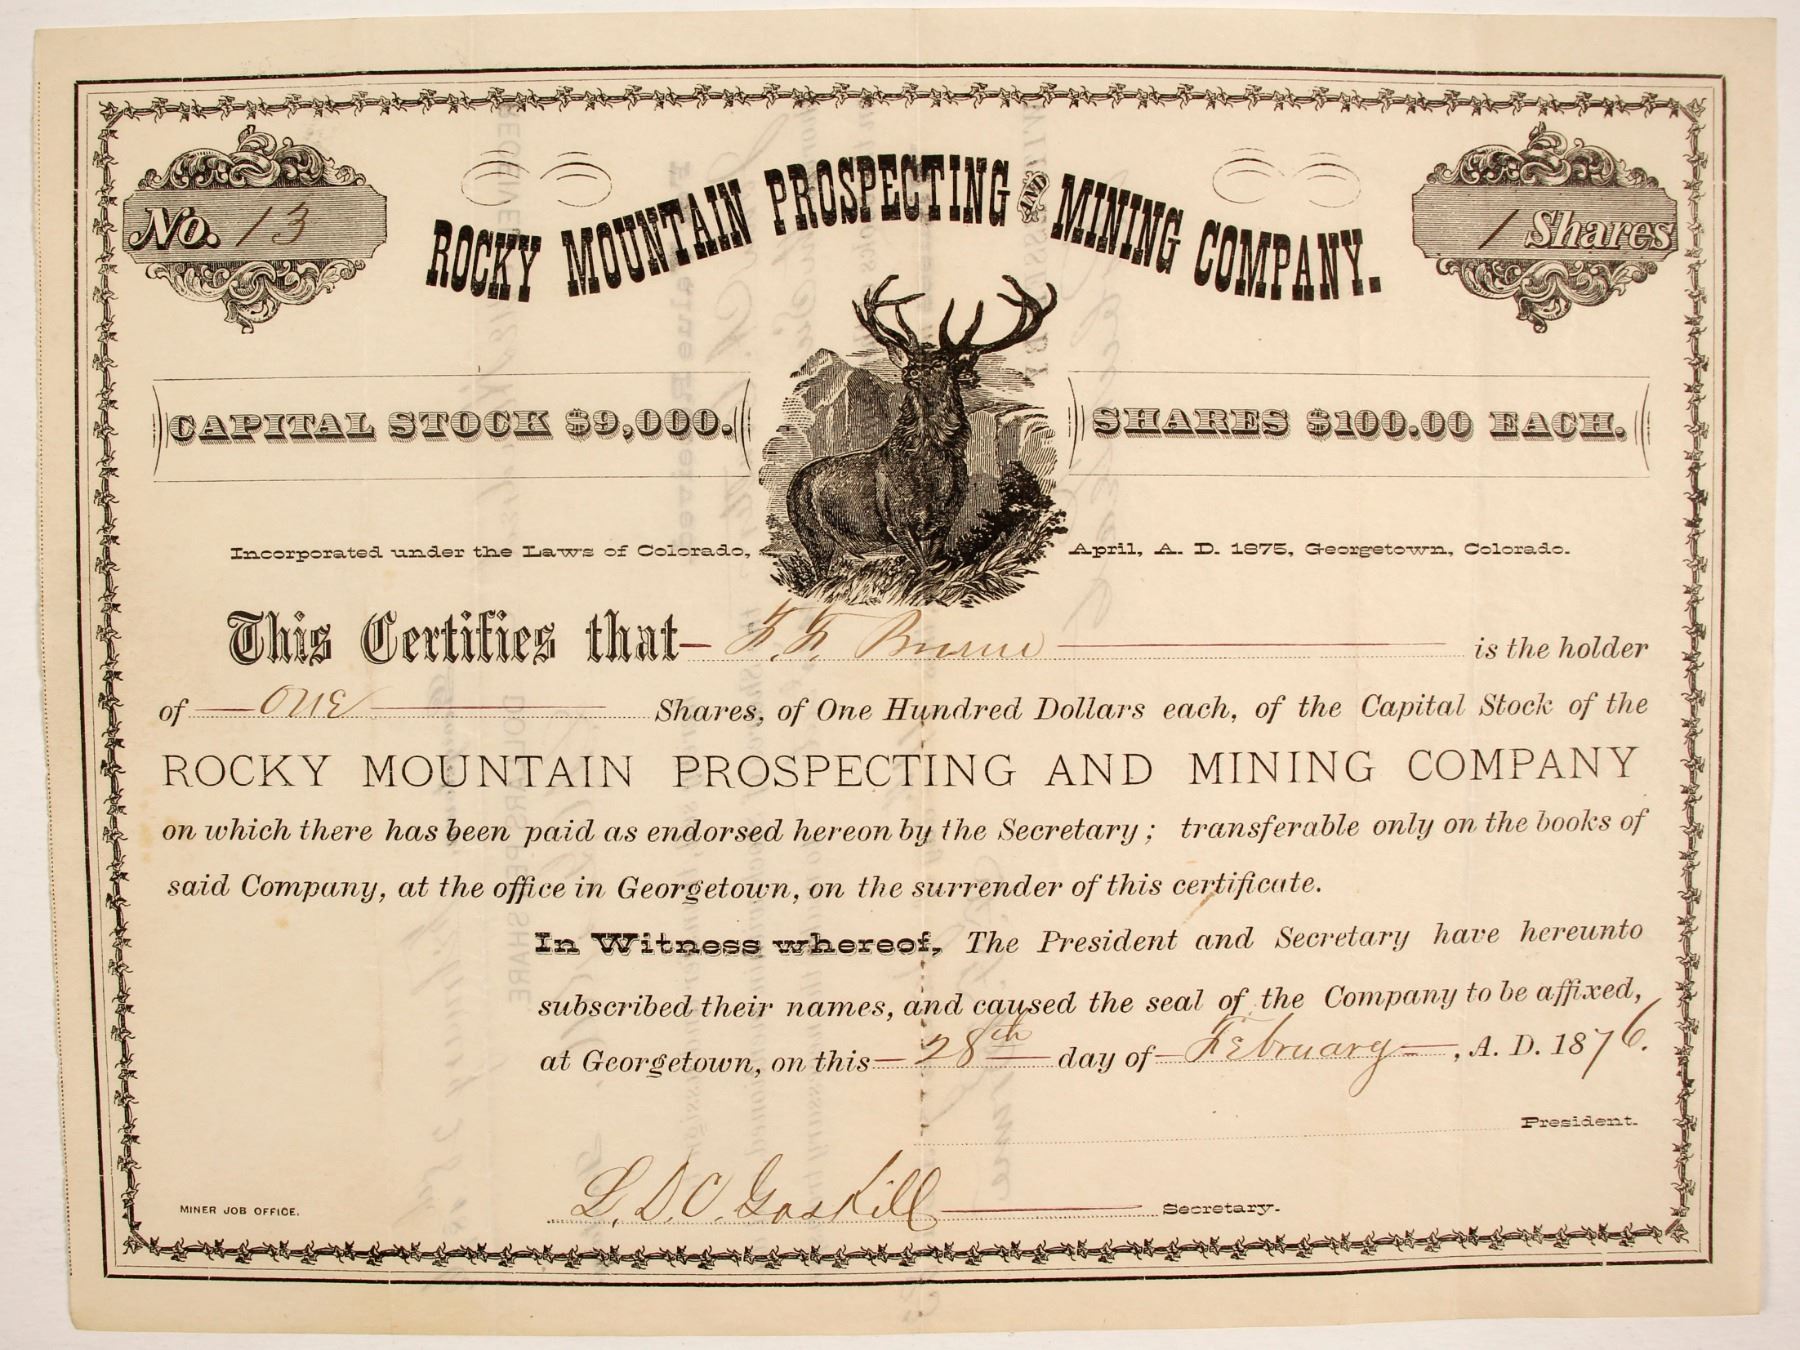 No. 13
ROCKY MOUNTAIN PROSPECTING AND MINING COMPANY.
1 Shares
CAPITAL STOCK $9,000.
SHARES $100.00 EACH.
Incorporated under the Laws of Colorado, April, A. D. 1875, Georgetown, Colorado.
This Certifies that F. F. is the holder
of one Shares, of One Hundred Dollars each, of the Capital Stock of the
ROCKY MOUNTAIN PROSPECTING AND MINING COMPANY
on which there has been paid as endorsed hereon by the Secretary; transferable only on the books of
said Company, at the office in Georgetown, on the surrender of this certificate.
In Witness whereof, The President and Secretary have hereunto
subscribed their names, and caused the seal of the Company to be affixed,
at Georgetown, on this 28th day of February, A. D. 1876.
President.
L. D. C. Gaskill Secretary.
MINER JOB OFFICE.